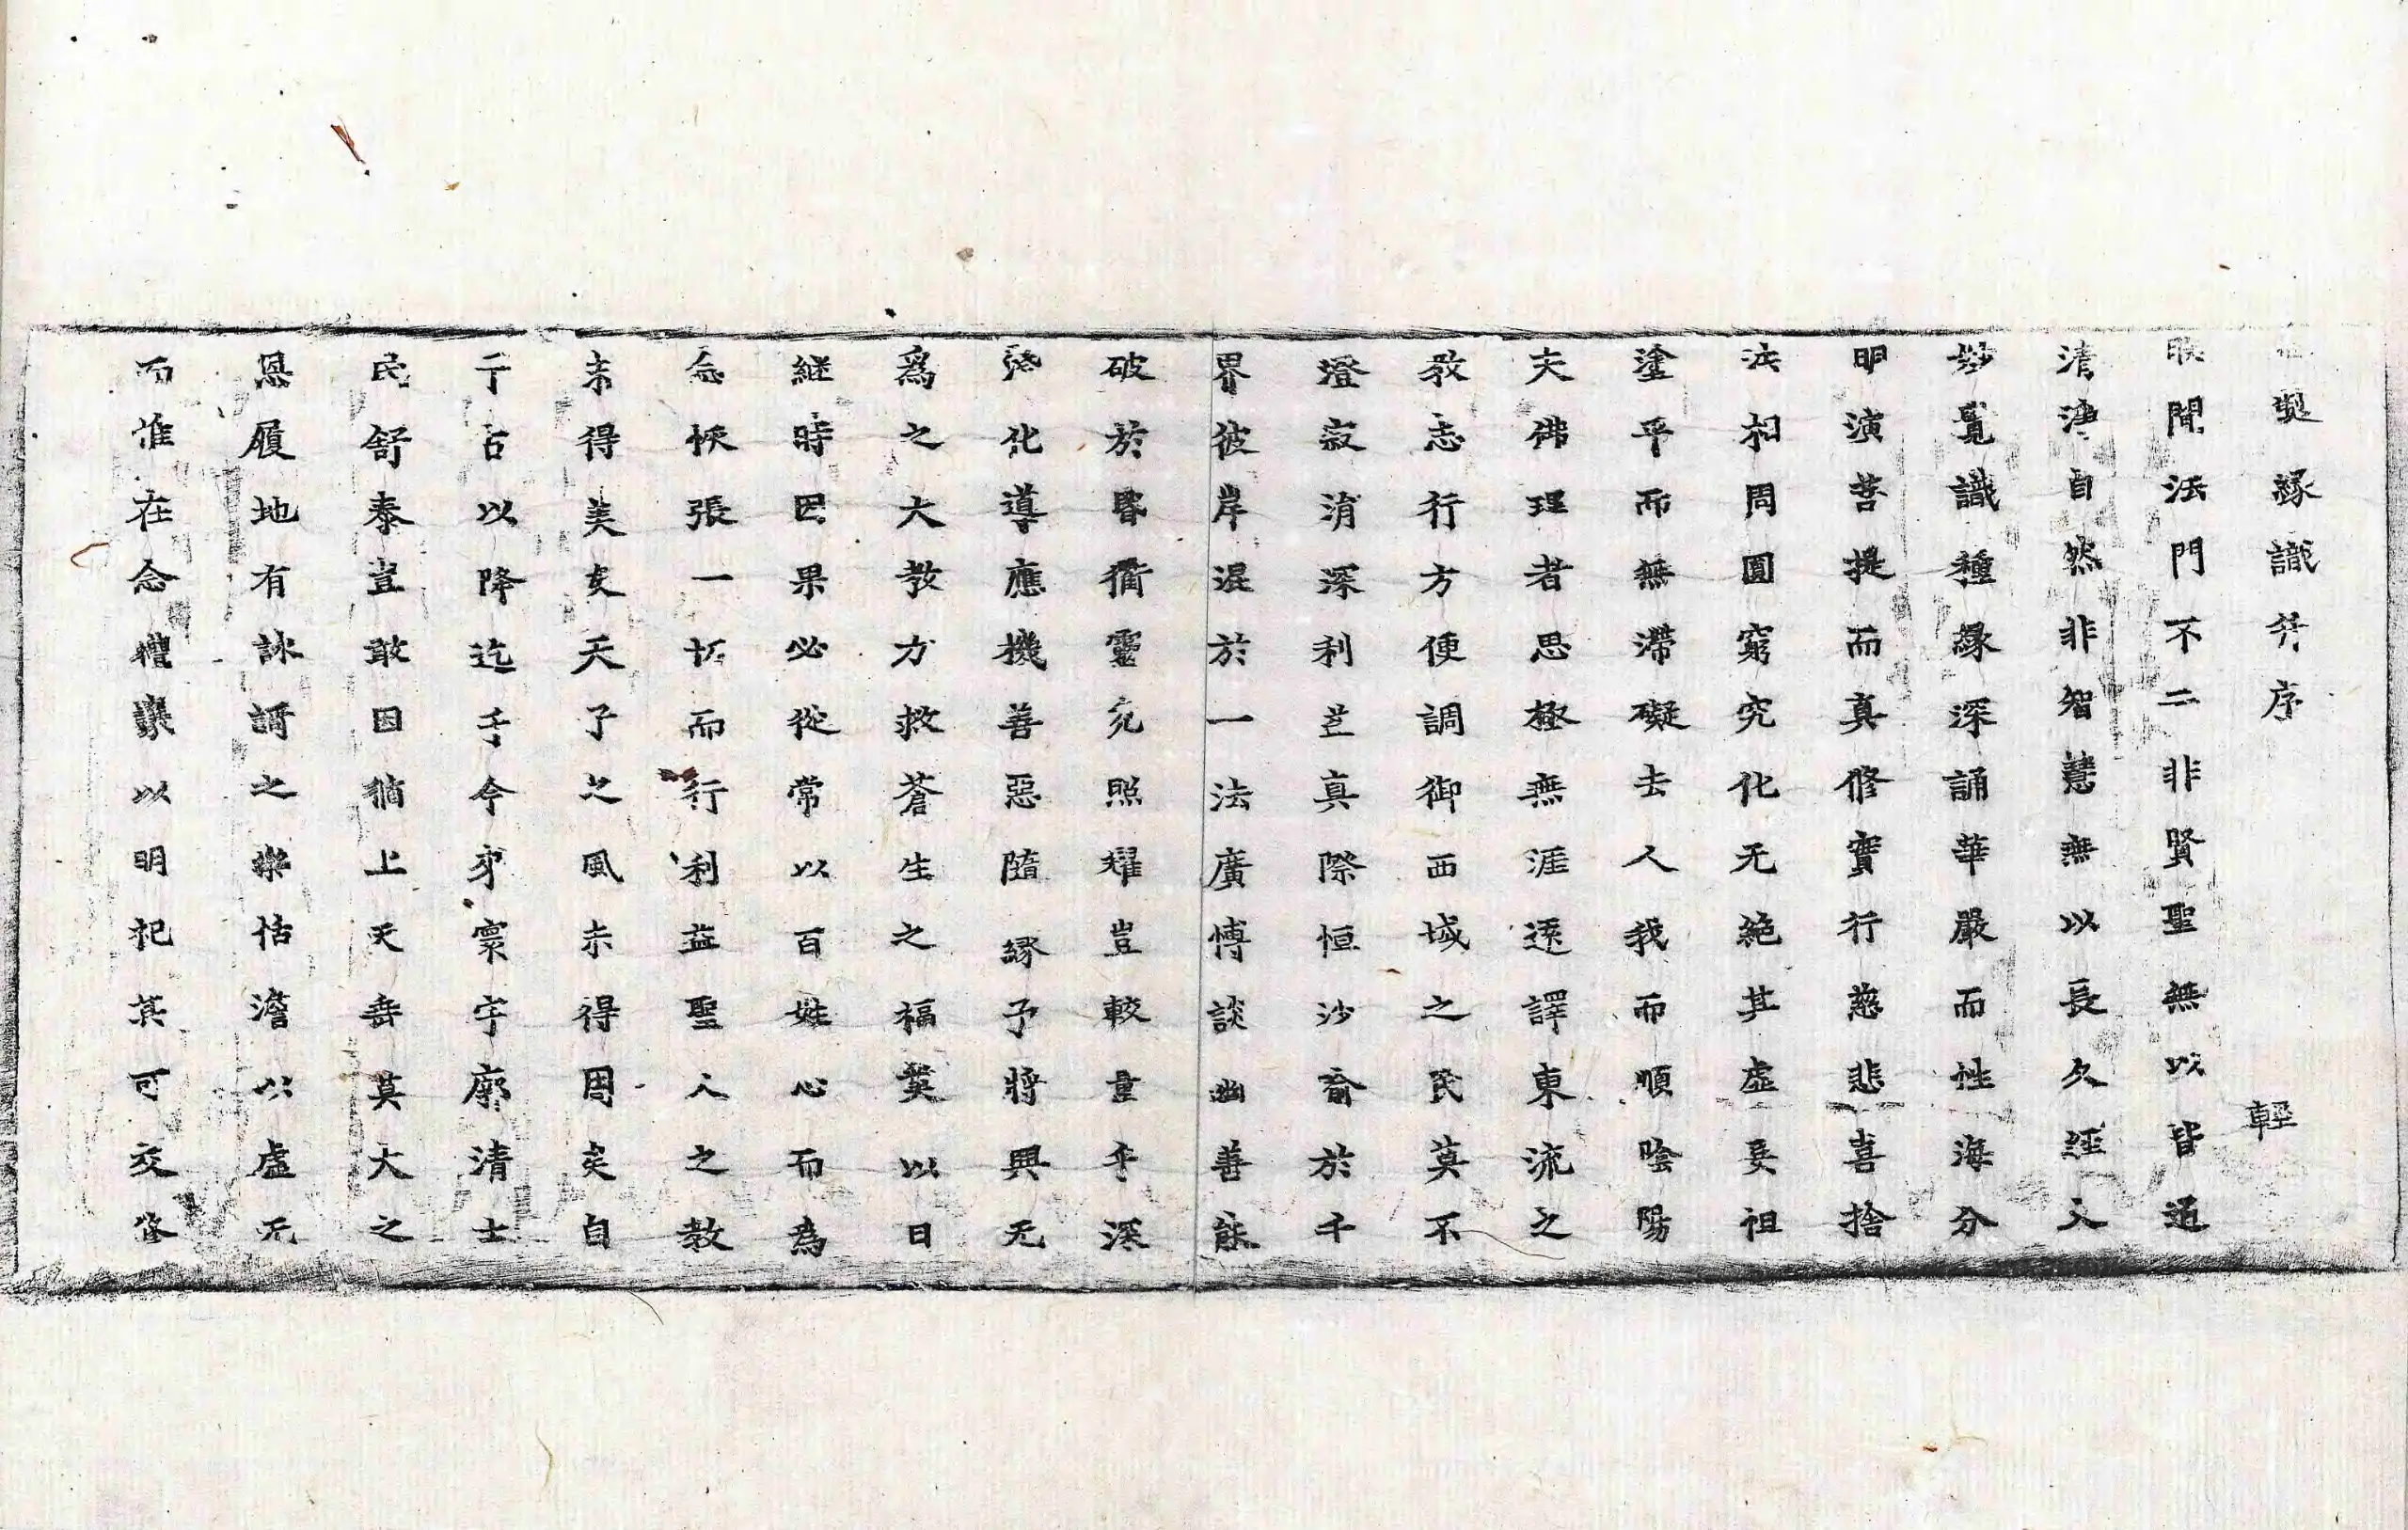 製緣識并序 輕
朕聞法門不二非賢聖無以皆通
清淨自然非智慧無以長久經入
妙覺識種緣深誦華嚴而性海分
明演菩提而真修實行慈悲喜捨
法相周圓窮究化无絶其虛妄祖
塗平而無滯礙去人我而順陰陽
夫佛理者思極無涯逐譯東流之
教志行方便調御西域之民莫不
澄寂消深利芒真際恒沙奮於千
界彼岸混於一法廣博談幽善能
破於昏衢靈光照耀豈較量乎深
淺化導應機善惡隨緣予將興无
爲之大教方救蒼生之福冀以日
継時因果必從常以百姓心而為
念恢張一切而行利益聖人之教
未得美矣天子之風未得周矣自
千古以降迄于今穿寰宇廓清士
民舒泰豈敢因循上天垂莫大之
恩履地有詠謌之樂恬澹以虛无
而准在念禮讓以明祀其可交修